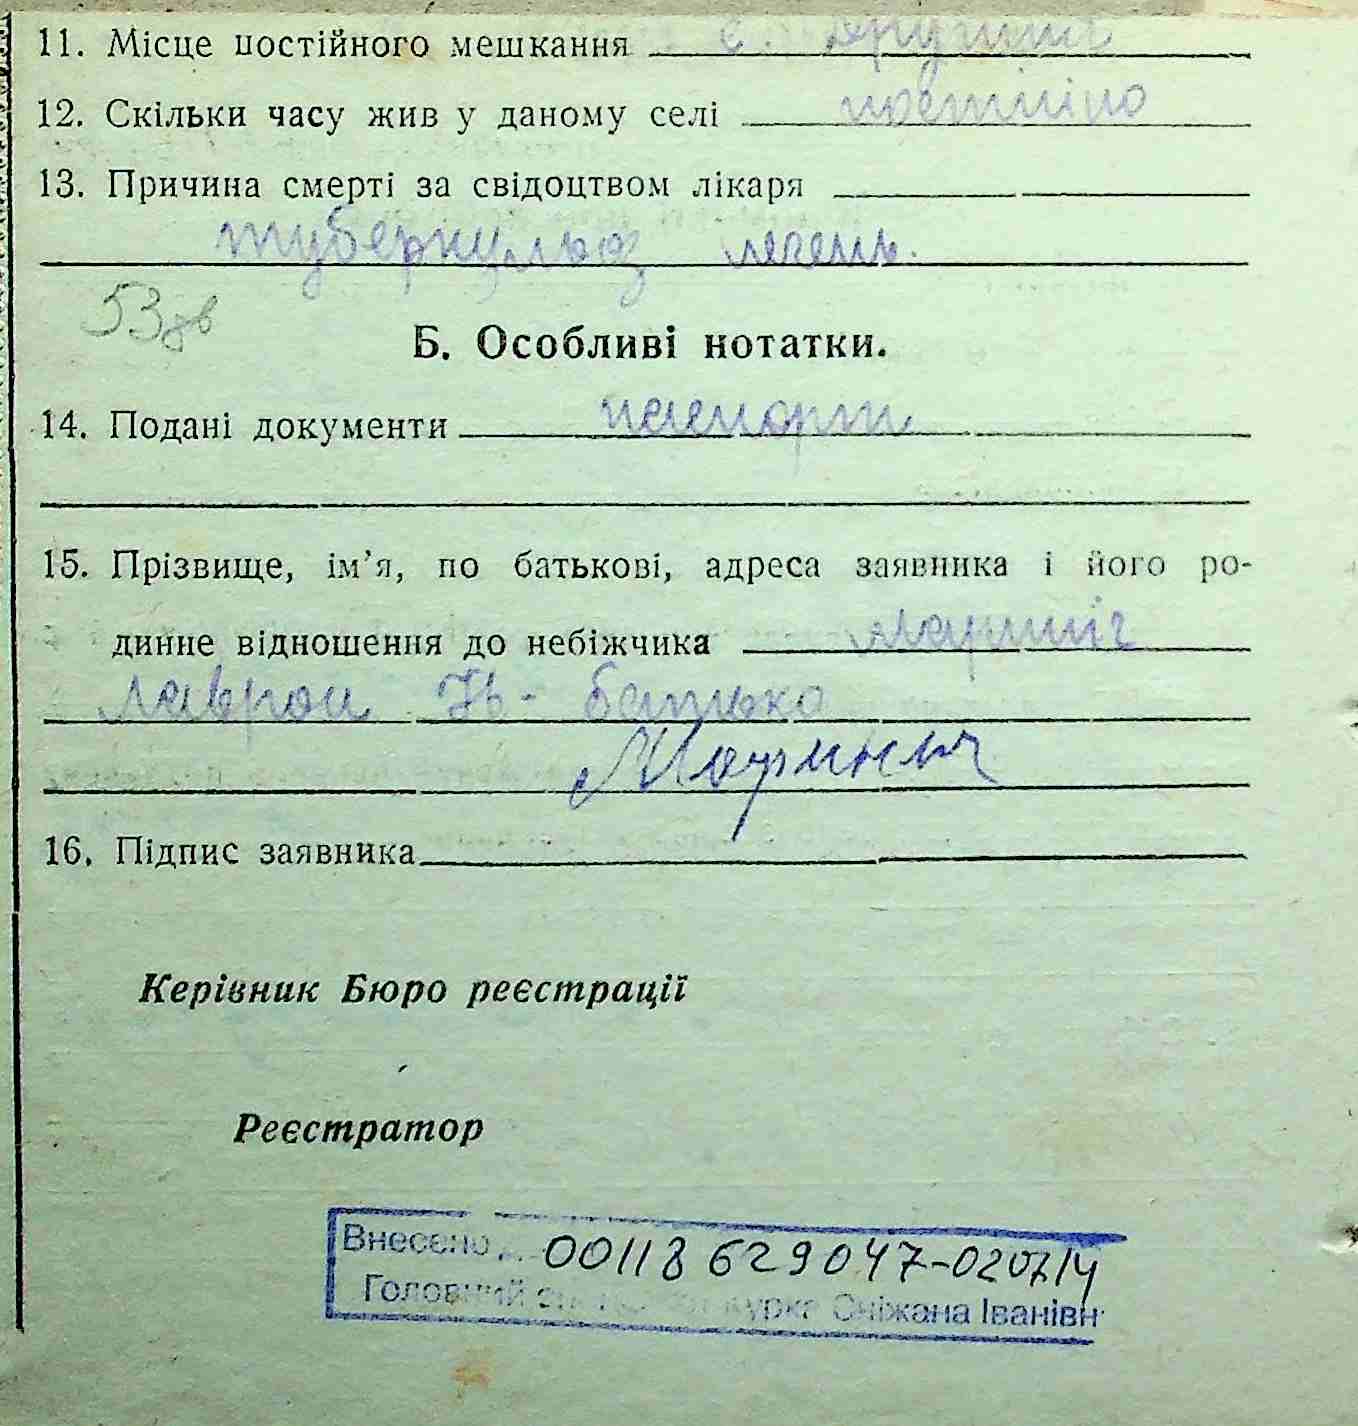 11. Місце постійного мешкання с.
12. Скільки часу жив у даному селі постійно
13. Причина смерті за свідоцтвом лікаря
туберкульоз легень.
53
Б. Особливі нотатки.
14. Подані документи паспорт
15. Прізвище, ім’я, по батькові, адреса заявника і його ро-
динне відношення до небіжчика
Лаврон Ів - батько
16. Підпис заявника
Керівник Бюро реєстрації
Реєстратор
Внесено 00118629047-020714
Головний Сніжана Іванівн